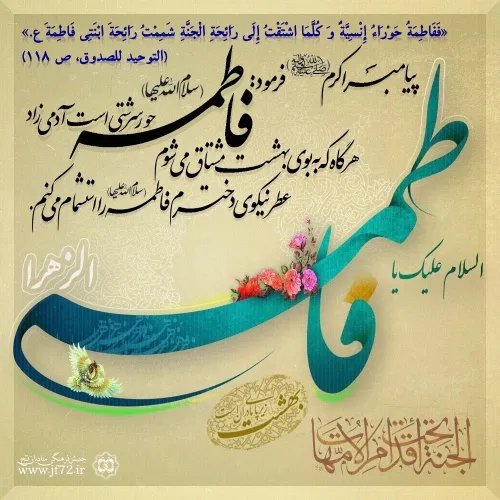 «فَفَاطِمَةُ حَوْرَاءُ إِنْسِيَّةٌ وَ كُلَّمَا اشْتَقْتُ إِلَى رَائِحَةِ الْجَنَّةِ شَمِمْتُ رَائِحَةَ ابْنَتِي فَاطِمَةَ ع.»
(التوحید للصدوق، ص ۱۱۸)
پیامبر اکرم (صلی الله علیه وآله) فرمود:
فاطمه (سلام الله علیها) حورسرشتی است آدمی زاد
هرگاه که به بوی بهشت مشتاق می‌شوم
عطر نیکوی دخترم فاطمه (سلام الله علیها) را استشمام می‌کنم.
السلام علیک یا
فاطمه
الزهرا
بهشت زیر پای مادران است
الجنة تحت اقدام الامهات
جنبش فرهنگی
www.jf72.ir